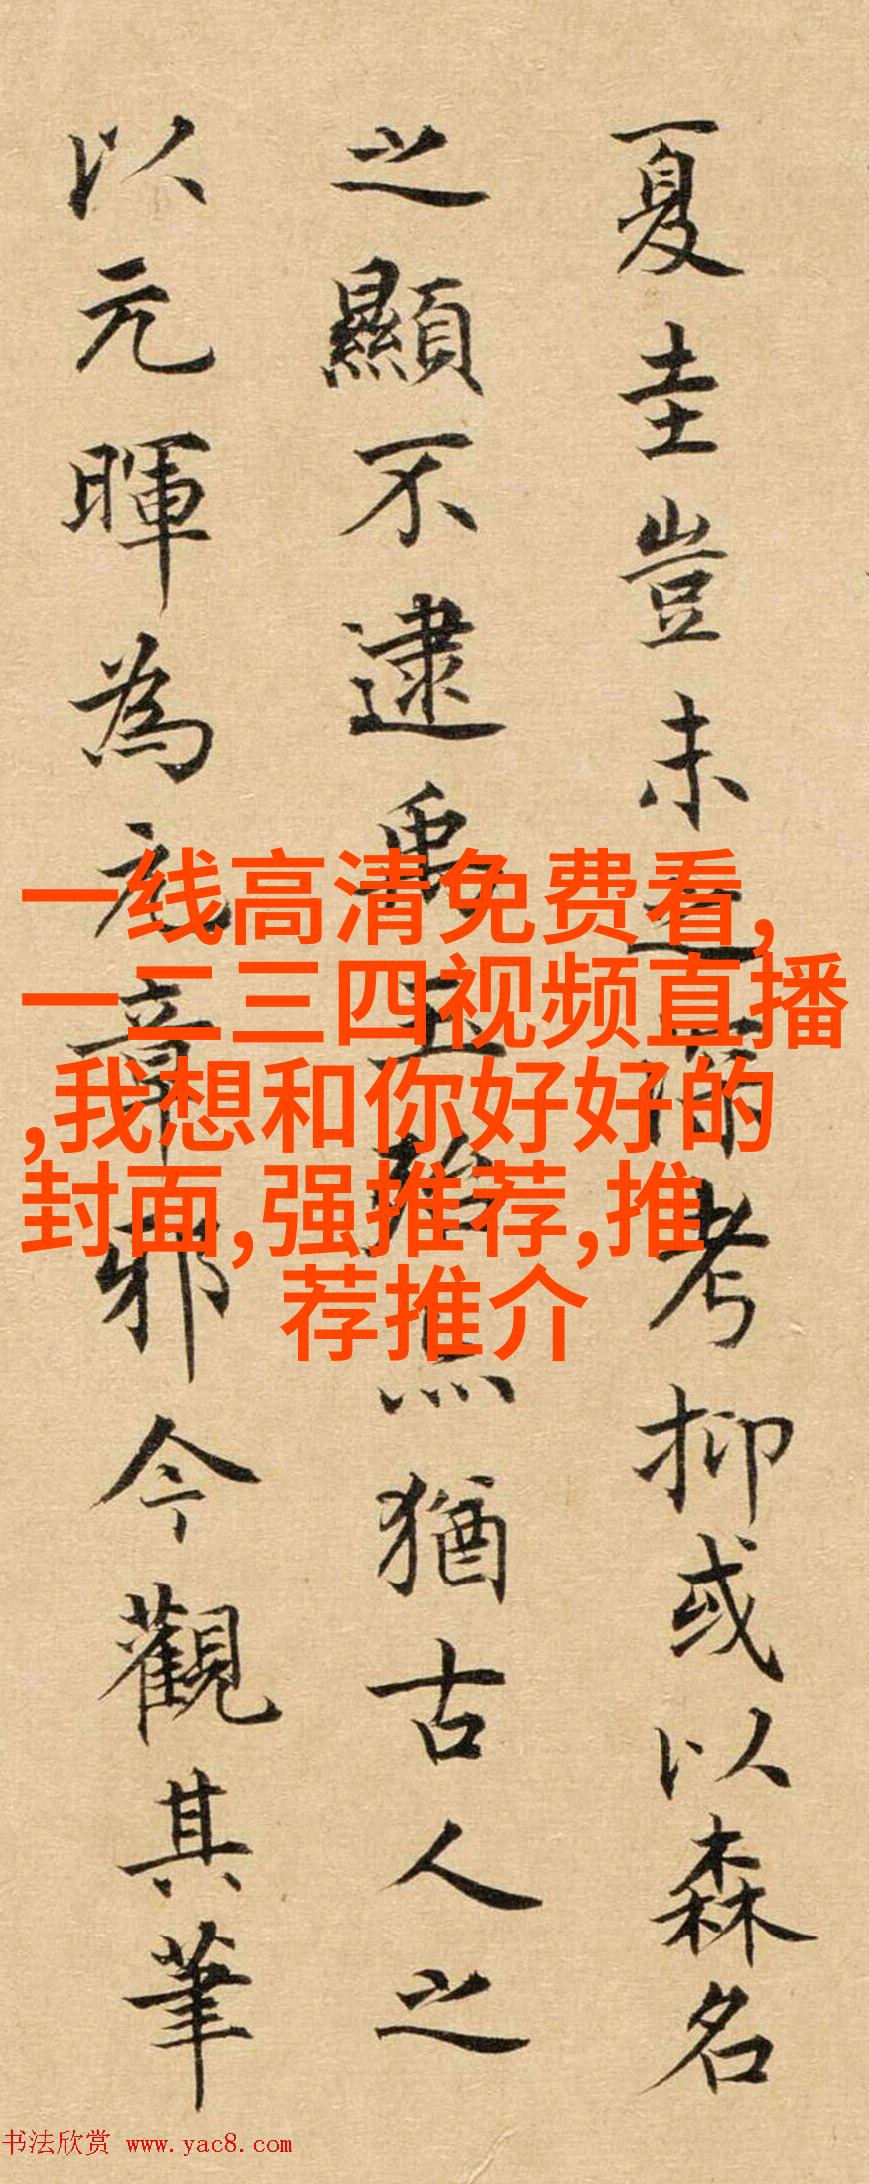 夏圭豈未之深考抑或以森名
之顯不逮禹玉耶然猶古人之
以元暉為元章邪今觀其筆
一线高清免费看,
一二三四视频直播
,我想和你好好的
封面,强推荐,推
荐推介
书法欣赏 www.yac8.com